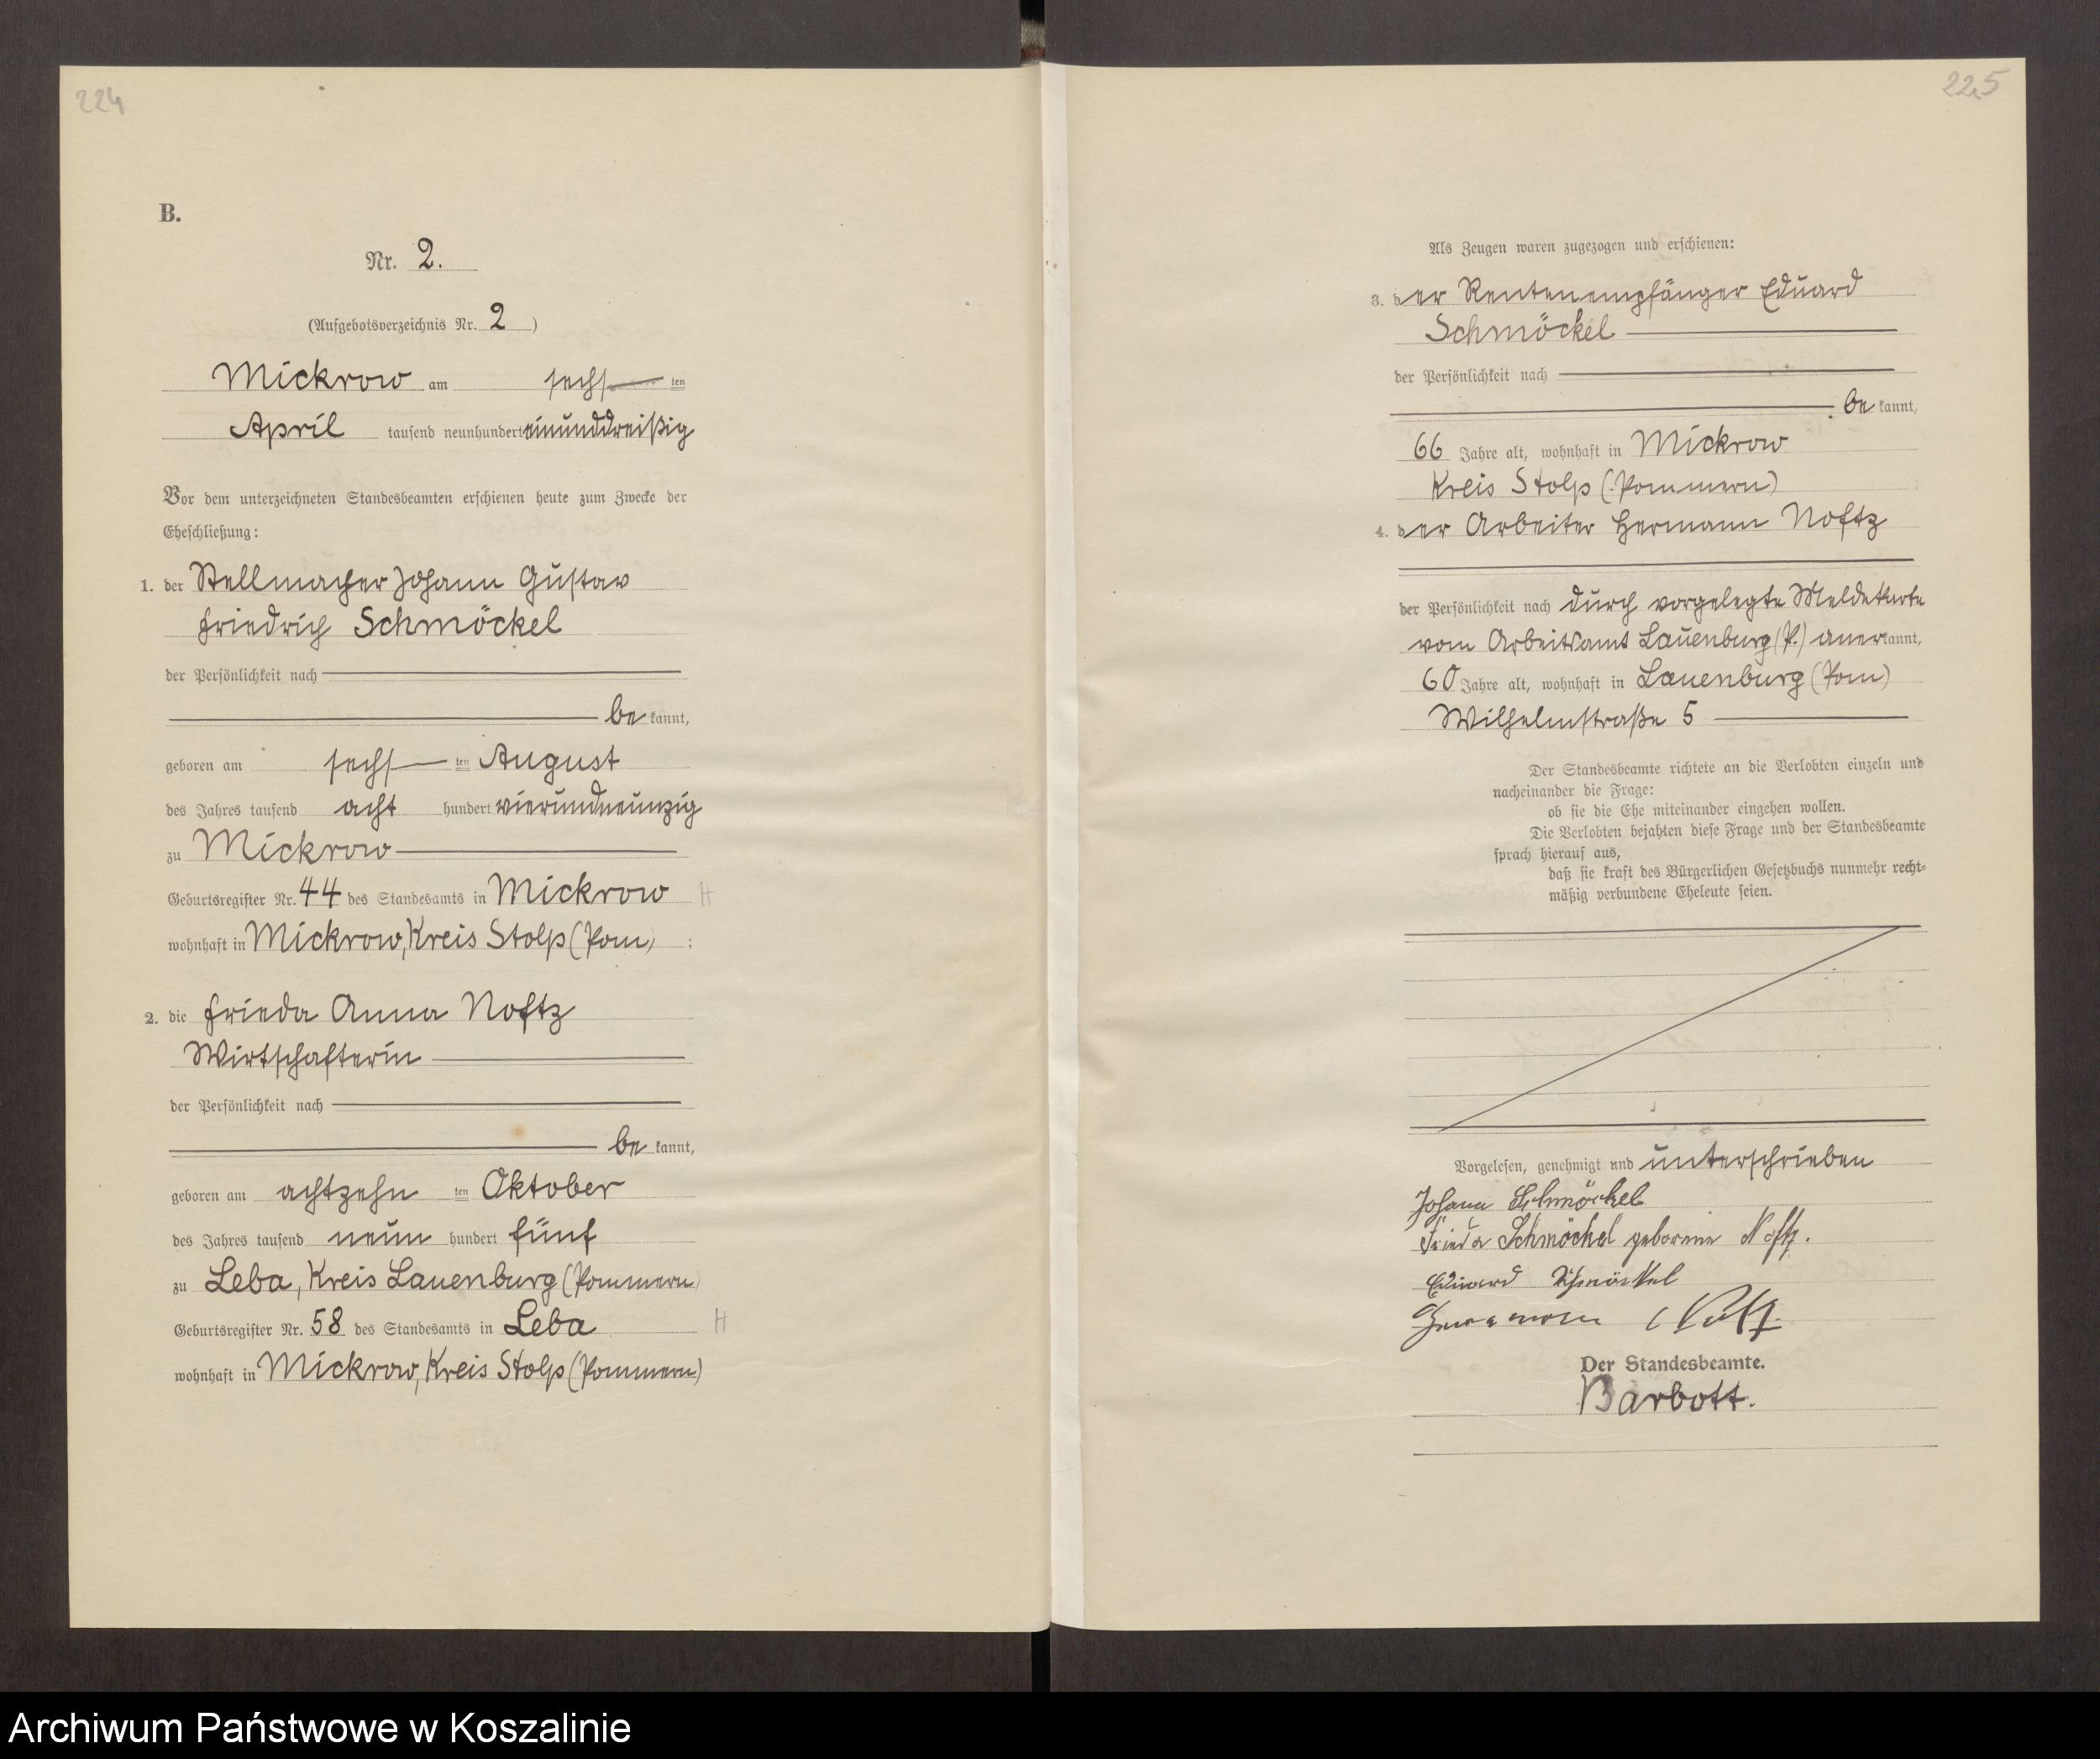 224
B.
Nr. 2.
(Aufgebotsverzeichnis Nr. 2)
Mickrow am sechsten
April tausend neunhundert einunddreißig
Vor dem unterzeichneten Standesbeamten erschienen heute zum Zwecke der
Eheschließung:
1. der Stellmacher Johann Gustav
Friedrich Schmöckel
der Persönlichkeit nach
be kannt,
geboren am sechs ten August
des Jahres tausend acht hundert vierundneunzig
zu Mickrow
Geburtsregister Nr. 44 des Standesamts in Mickrow H
wohnhaft in Mickrow, Kreis Stolp (Pom) ;
2. die Frieda Anna Noftz
Wirtschafterin
der Persönlichkeit nach
be kannt,
geboren am achtzehn ten Oktober
des Jahres tausend neun hundert fünf
zu Leba, Kreis Lauenburg (Pommern)
Geburtsregister Nr. 58 des Standesamts in Leba H
wohnhaft in Mickrow, Kreis Stolp (Pommern)
225
Als Zeugen waren zugezogen und erschienen:
3. der Rentenempfänger Eduard
Schmöckel
der Persönlichkeit nach
be kannt,
66 Jahre alt, wohnhaft in Mickrow
Kreis Stolp (Pommern)
4. der Arbeiter Hermann Noftz
der Persönlichkeit nach durch vorgelegte Meldekarte
vom Arbeitsamt Lauenburg (P.) anerkannt,
60 Jahre alt, wohnhaft in Lauenburg (Pom)
Wilhelmstraße 5
Der Standesbeamte richtete an die Verlobten einzeln und
nacheinander die Frage:
ob sie die Ehe miteinander eingehen wollen.
Die Verlobten bejahten diese Frage und der Standesbeamte
sprach hierauf aus,
daß sie kraft des Bürgerlichen Gesetzbuchs nunmehr recht-
mäßig verbundene Eheleute seien.
Vorgelesen, genehmigt und unterschrieben
Johann Schmöckel
Frieda Schmöckel geborene Noftz.
Eduard Schmöckel
Hermann Noftz.
Der Standesbeamte.
Barbott.
Archiwum Państwowe w Koszalinie